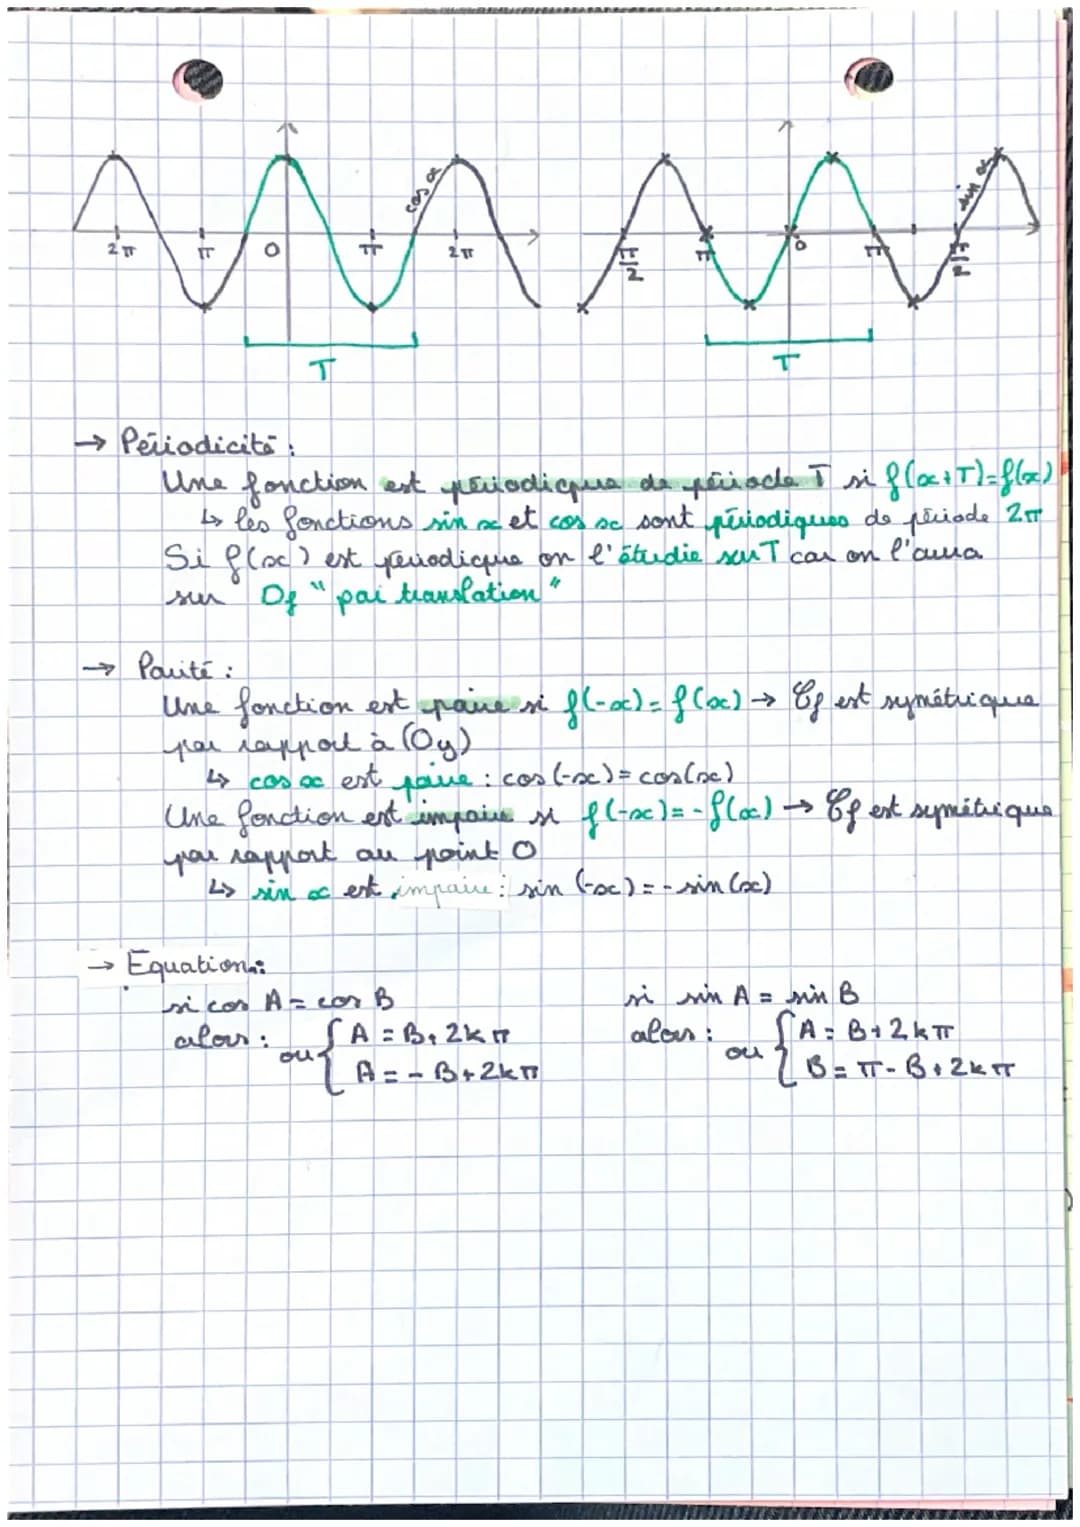 2π π O π 2π cos x
π/2 π O π π/2 sin x
T T
→ Périodicité :
Une fonction est périodique de période T si f(x+T)=f(x)
↳ les fonctions sin x et cos x sont périodiques de période 2π
Si f(x) est periodique on l'étudie sur T car on l'aura
sur Df "par translation"
→ Parité :
Une fonction est paire si f(-x)=f(x) → Cf est symétrique
par rapport à (Oy)
↳ cos x est paire : cos(-x)=cos(x)
Une fonction est impaire si f(-x)=-f(x) → Cf est symétrique
par rapport au point O
↳ sin x est impaire : sin (-x) = - sin (x)
→ Equation :
si cos A = cos B si sin A = sin B
alors : ou { A = B + 2kπ alors : ou { A = B + 2kπ
A = - B + 2kπ B = π - B + 2kπ